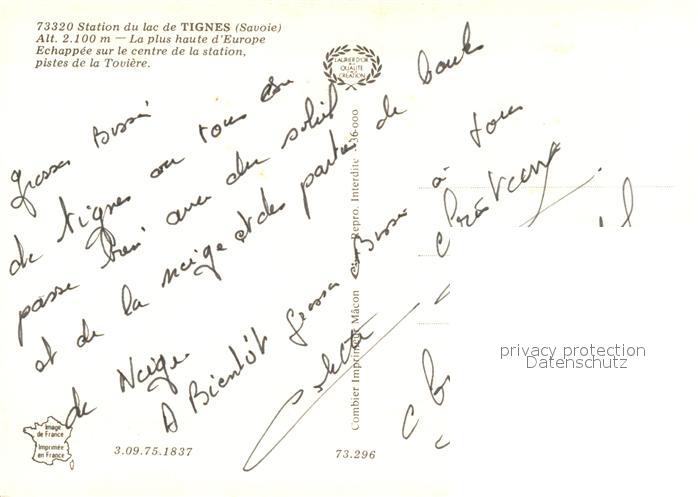 73320 Station du lac de TIGNES (Savoie)
Alt. 2.100 m — La plus haute d'Europe
Echappée sur le centre de la station,
pistes de la Tovière.
LAURIER D'OR
QUALITÉ
CRÉATION
Grosses Bises
de Tignes ou tous se
passe bien avec du soleil
et de la neige et des parties de boules
de Neige
A Bientôt grosses Bises à tous
Colette
Christian
Combier Imprimeur Mâcon Repro. Interdite
privacy protection
Datenschutz
Image
de France
Imprimée
en France
3.09.75.1837
73.296